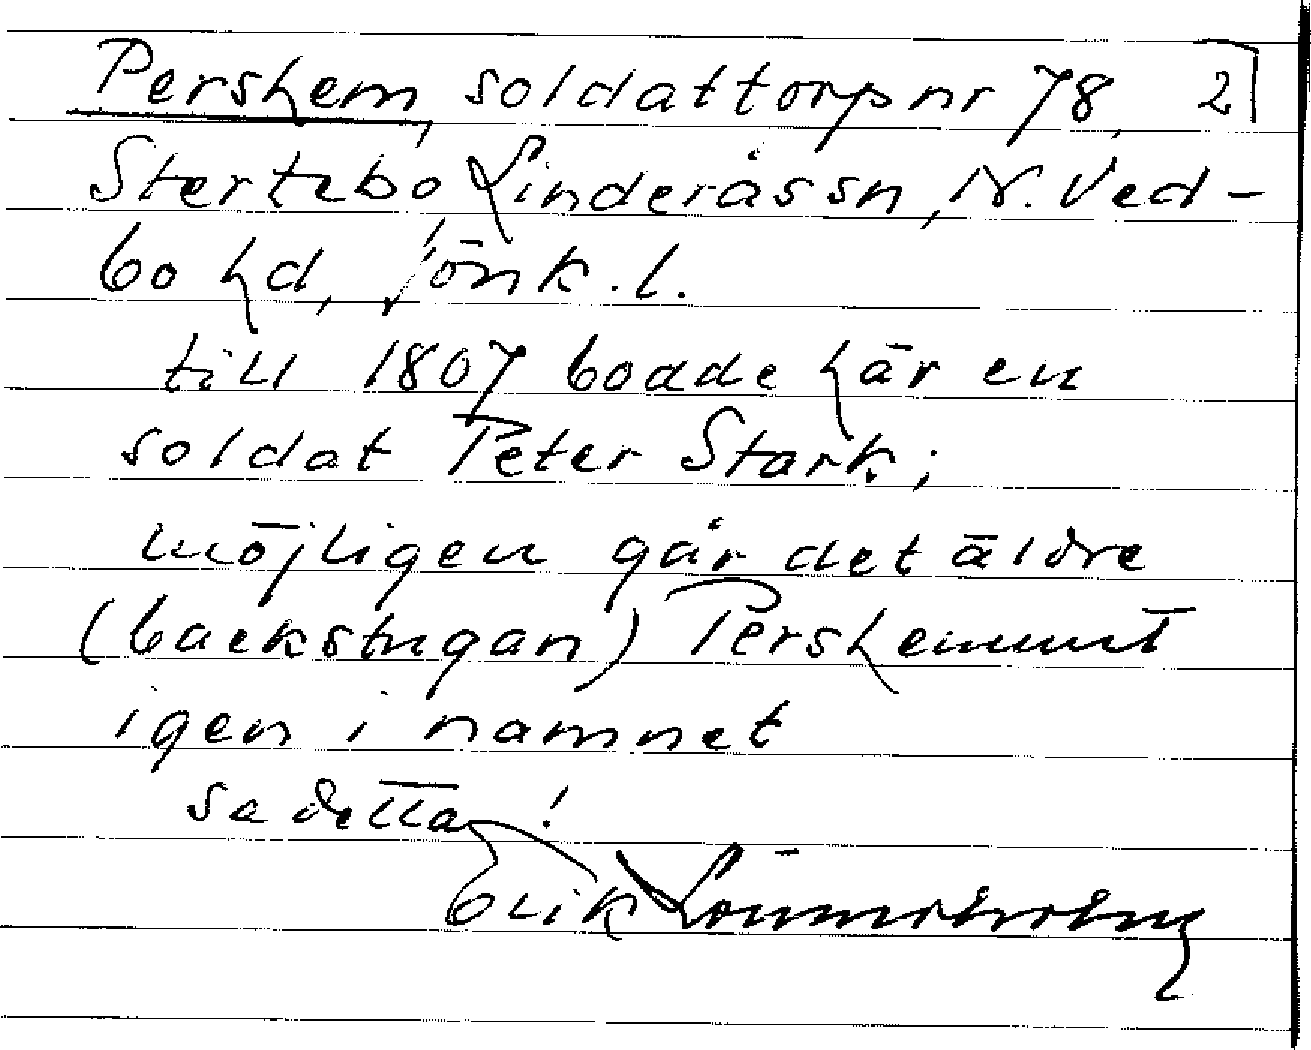 Pershem, soldattorp nr 78, 2
Stertebo, Linderås sn, N. Ved-
bo hd, Jönk. l.
till 1807 bodde här en
soldat Peter Stark;
möjligen går det äldre
(backstugan) Pershemmet
igen i namnet
se detta!
Erik